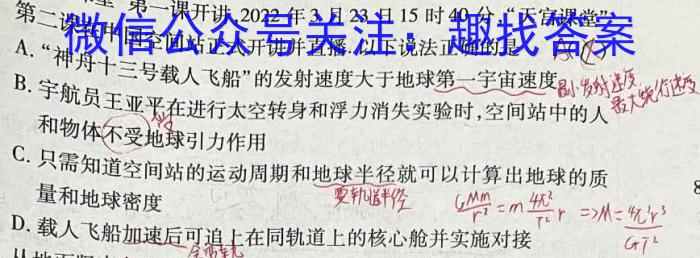 第一课开讲,2022年3月23日15时40分,“天宫课堂”
第二课在中国空间站正式开讲并直播.以下说法正确的是
微信公众号关注:趣找答案
A.“神舟十三号载人飞船”的发射速度大于地球第一宇宙速度
最小发射速度
最大绕行速度
B.宇航员王亚平在进行太空转身和浮力消失实验时,空间站中的人
和物体不受地球引力作用
C.只需知道空间站的运动周期和地球半径就可以计算出地球的质
量和地球密度
要轨道半径
GMm/r² = m 4π²/T² r ⇒ M = 4π²r³/GT²
D.载人飞船加速后可追上在同轨道上的核心舱并实施对接